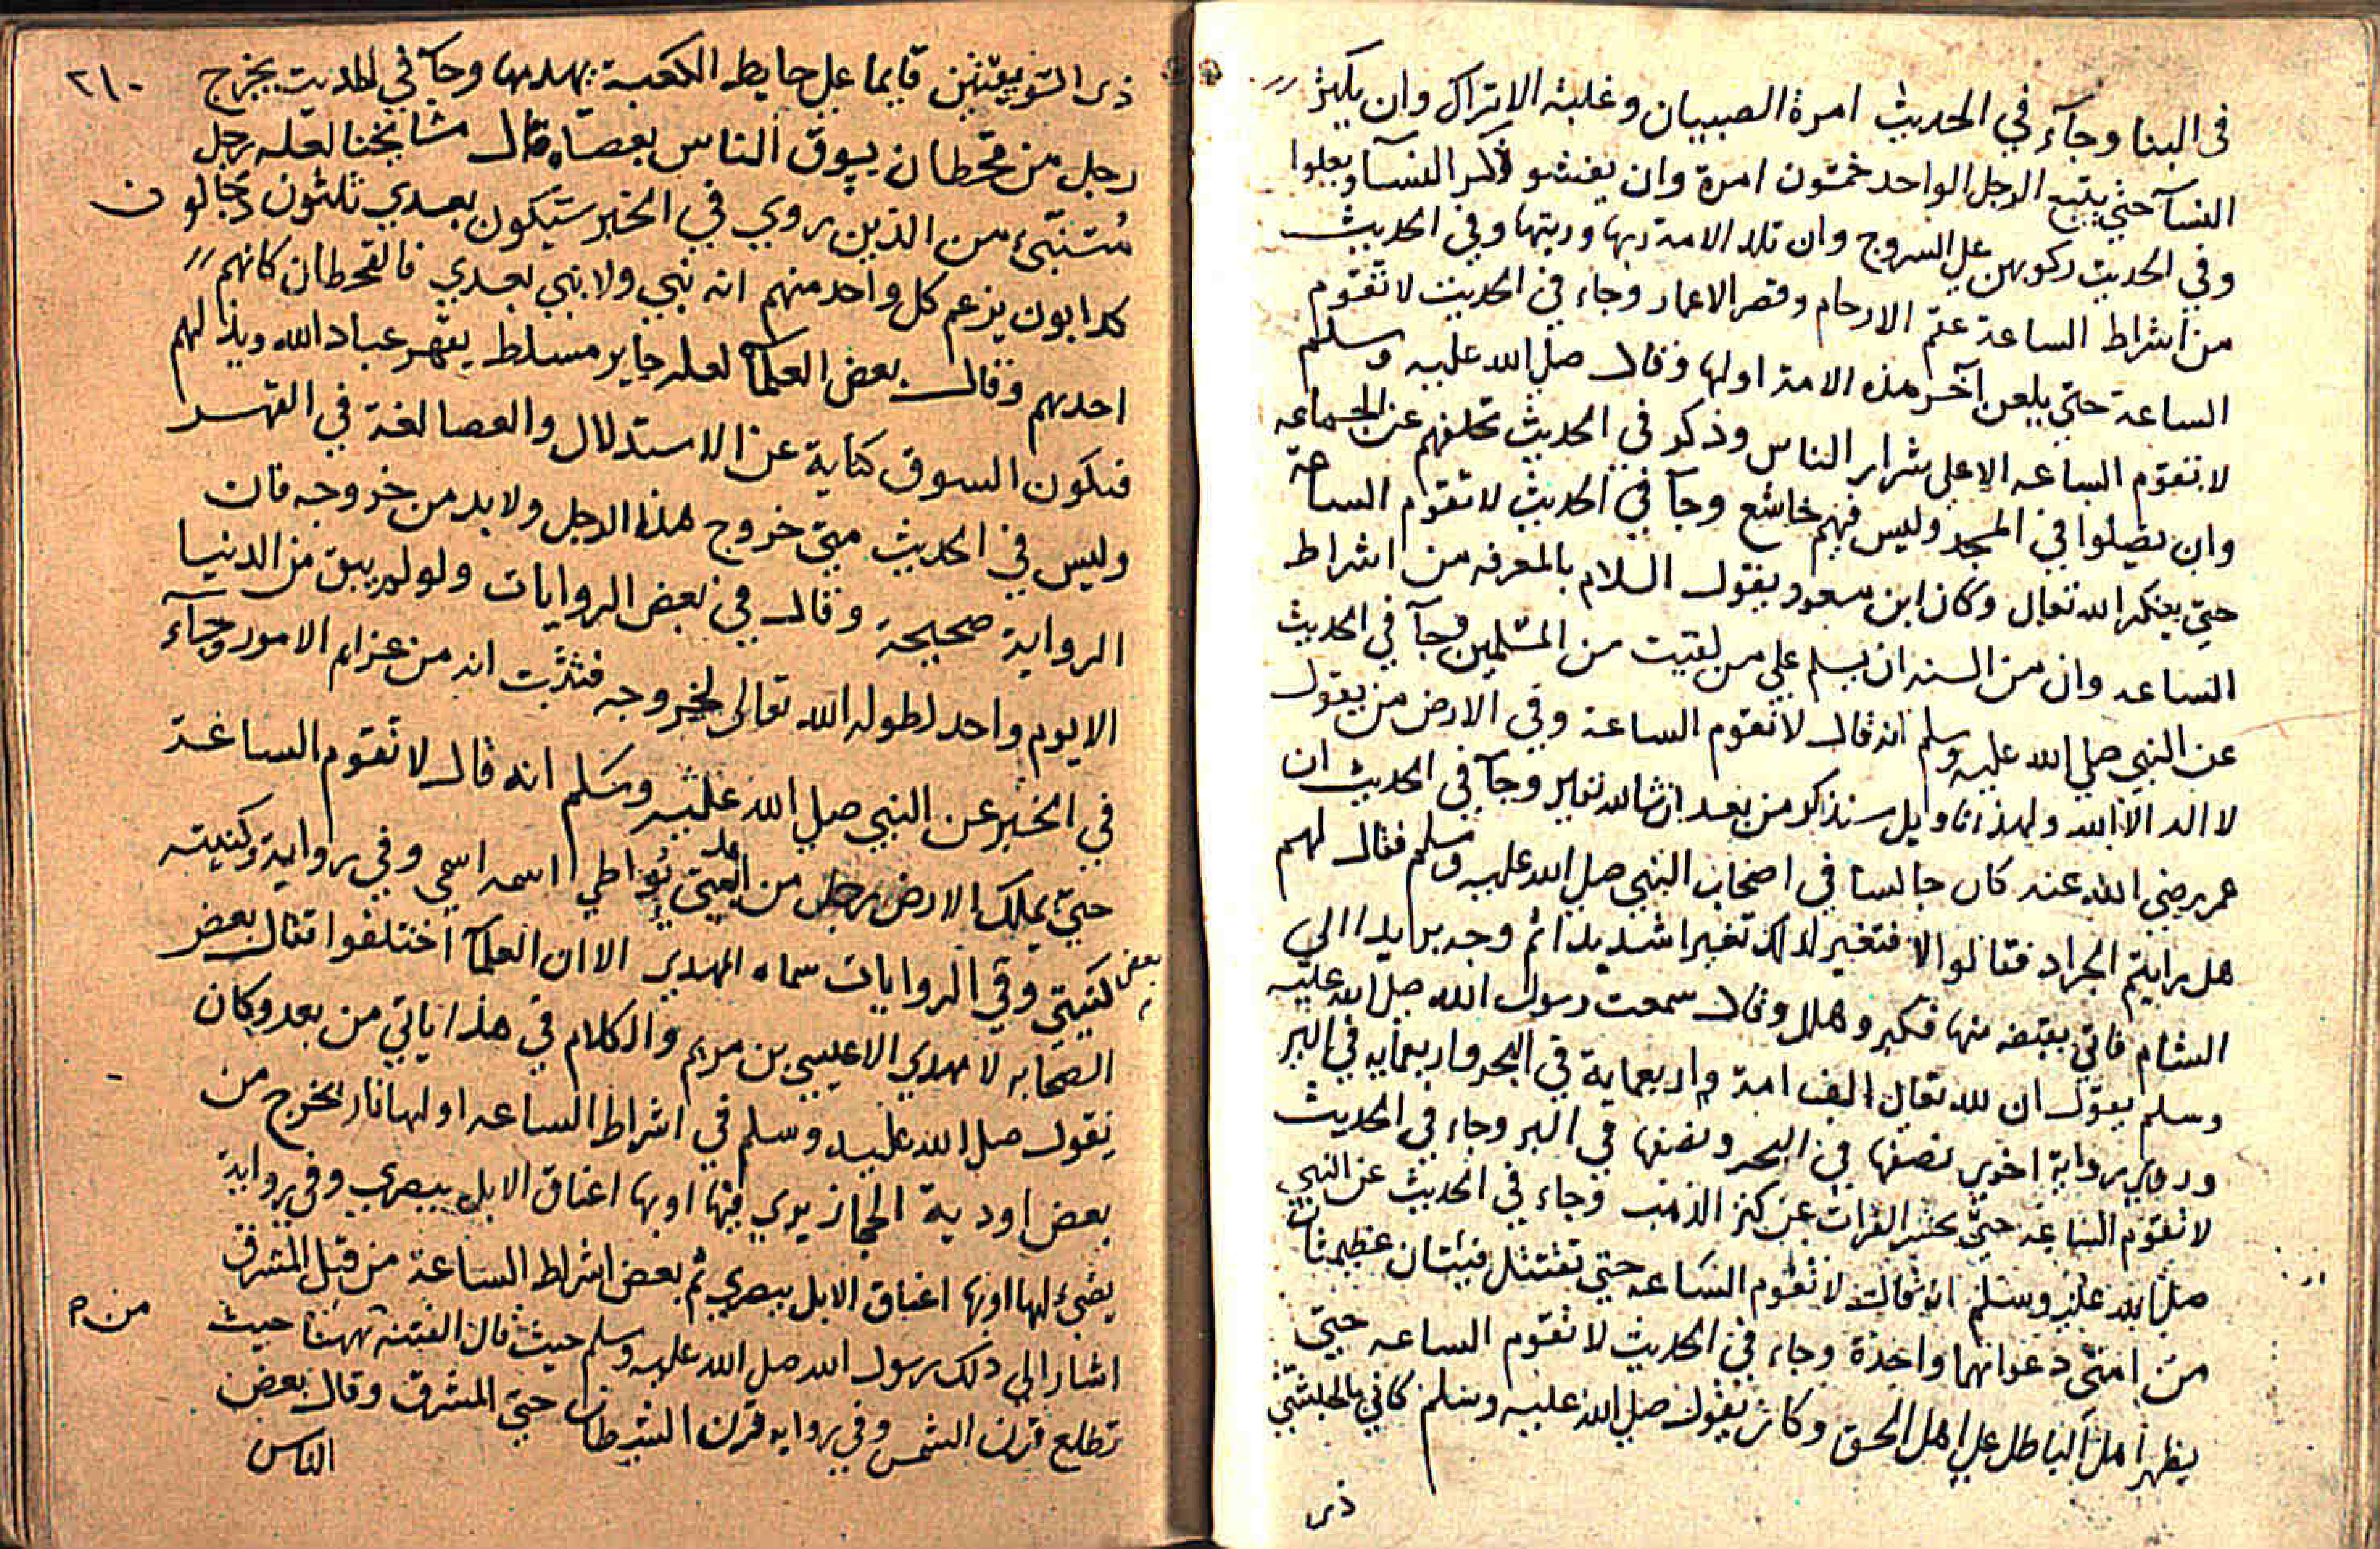 فى البنا وجآء في الحديث امرة الصبيان وغلبة الاتراك وان يكثر
النسآ حتي يتبع الرجل الواحد خمسون امرة وان يفشو ذكر النسآ ويعلوا
وفي الحديث ركوبهن علي السروج وان تلد الامة ربها وربتها وفي الحديث
من اشراط الساعة عقم الارحام وقصر الاعمار وجاء في الحديث لا تقوم
الساعة حتي يلعن آخر هذه الامة اولها وقال صلي الله عليه وسلم
لا تقوم الساعه الا علي شرار الناس وذكر في الحديث تخلفهم عن الجماعه
وان يصلوا في المسجد وليس فيهم خاشع وجآ في الحديث لا تقوم الساعة
حتي ينكر الله تعالي وكان ابن مسعود يقول السلام بالمعرفه من اشراط
الساعه وان من السنه ان يسلم علي من لقيت من المسلمين وجآ في الحديث
عن النبي صلي الله عليه وسلم انه قال لا تقوم الساعة وفي الارض من يقول
لا اله الا الله ولهذا تاويل سنذكر من بعد ان شا الله تعالي وجآ في الحديث ان
عمر رضي الله عنه كان جالسا في اصحاب النبي صلي الله عليه وسلم فقال لهم
هل رايتم الجراد فقالوا لا فتغير لذلك تغيرا شديدا ثم وجه بريدا الي
الشام فاتي بقبضه منها فكبر وهلل وقال سمعت رسول الله صلي الله عليه
وسلم يقول ان لله تعالي الف امة واربعماية في البحر واربعمايه في البر
وروي رواية اخري نصفها في البحر ونصفها في البر وجاء في الحديث
لا تقوم الساعه حتي يحسر الفرات عن كنز الذهب وجاء في الحديث عن النبي
صلي الله عليه وسلم انه قال لا تقوم الساعه حتي تقتتل فئتان عظيمتان
من امتي دعواتهما واحدة وجاء في الحديث لا تقوم الساعه حتي
يظهر اهل الباطل علي اهل الحق وكان يقول صلي الله عليه وسلم كاني بالحبشي
ذى
٢١٠
ذى السويقتين قايما علي حايط الكعبة يهدمها وجآ في الحديث يخرج
رجل من قحطان يسوق الناس بعصاه قال مشايخنا لعله رجل
متنبئ من الذين روي في الخبر ستيكون بعدي ثلثون دجالون
كدابون يزعم كل واحد منهم انه نبي ولا نبي بعدي فالقحطان كانهم
احدهم وقال بعض العلمآ لعله جاير مسلط يقهر عباد الله ويذلهم
فتكون السوق كناية عن الاستدلال والعصا لغة في القهر
وليس في الحديث متي خروج هذا الرجل ولا بد من خروجه فان
الرواية صحيحة وقال في بعض الروايات ولو لم يبق من الدنيا
الا يوم واحد لطوله الله تعالي لخروجه فثبت انه من عزايم الامور وجآء
في الخبر عن النبي صلي الله عليه وسلم انه قال لا تقوم الساعة
حتي يملك الارض رجل من يواطي اسمه اسمي وفي رواية وكنيته
كنيتي وفي بعض الروايات سماه المهدي الا ان العلمآ اختلفوا فقال بعض
الصحابه لا مهدي الا عيسي بن مريم والكلام في هذا ياتي من بعد وكان
يقول صلي الله عليه وسلم في اشراط الساعه اولها نار تخرج من
بعض اودية الحجاز يري فيها او بها اعناق الابل ببصري وفي رواية
يضيء لها او بها اعناق الابل ببصري ثم بعض اشراط الساعة من قبل المشرق
اشار الي ذلك رسول الله صلي الله عليه وسلم حيث قال الفتنه ههنا من حيث
تطلع قرن الشمس وفي روايه قرن الشيطان حتي المشرق وقال بعض
الناس